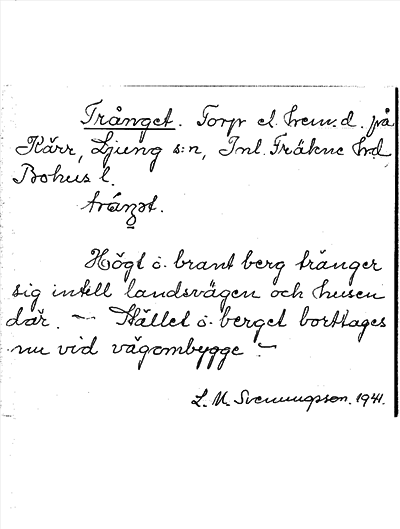 Trånget. Torp el. hemm.d. på
Kärr, Ljung s:n, Inl. Fräkne hd
Bohus l.
Högt o. brant berg tränger
sig intill landsvägen och husen
där. — Stället o. berget borttages
nu vid vägombygge —
L. M. Svenungsson. 1941.